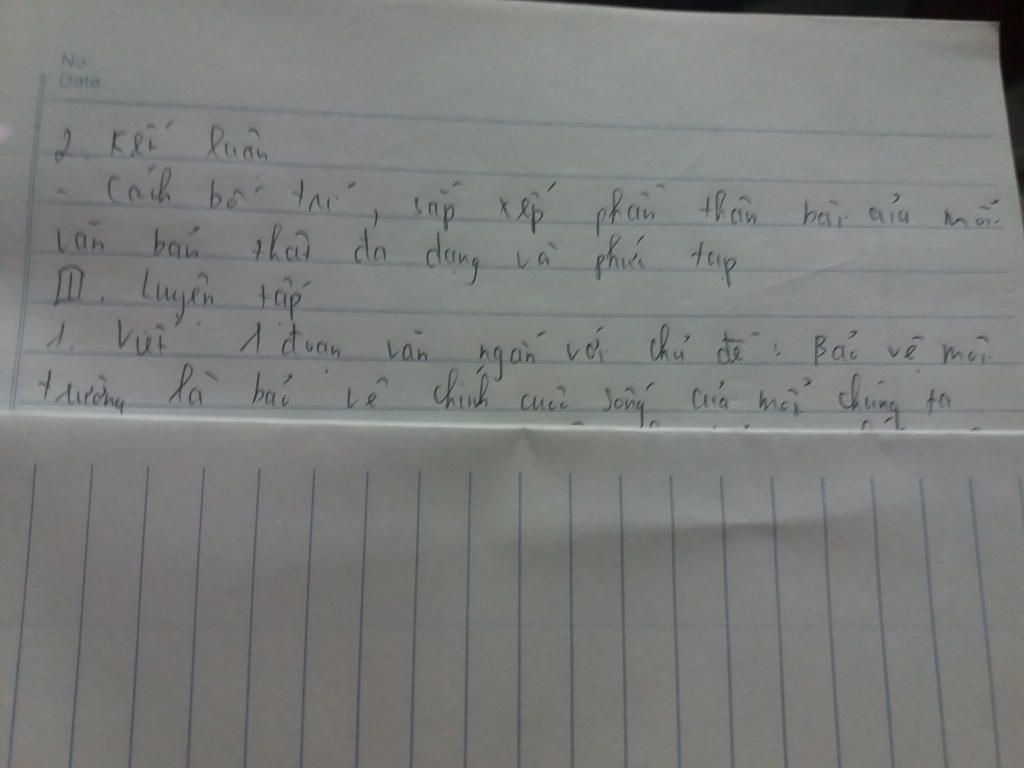 No.
Date
2. Kết luận
- Cách bố trí, sắp xếp phần thân bài của mỗi
văn bản thật đa dạng và phức tạp
III. Luyện tập
1. Viết 1 đoạn văn ngắn với chủ đề: Bảo vệ môi
trường là bảo vệ chính cuộc sống của mỗi chúng ta